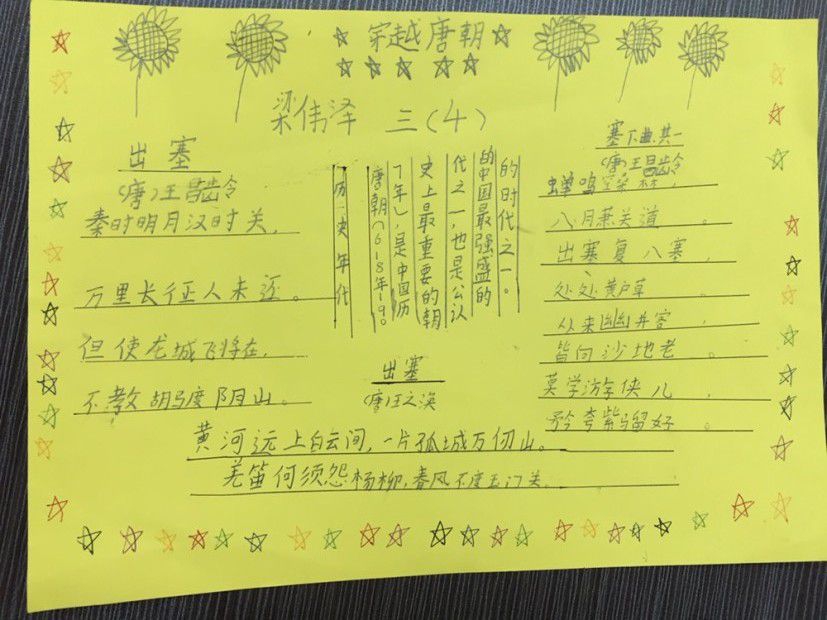 穿越唐朝
梁伟泽 三(4)
出塞
(唐)王昌龄
秦时明月汉时关,
万里长征人未还。
但使龙城飞将在,
不教胡马度阴山。
历史年代
唐朝(618年190
7年),是中国历
史上最重要的朝
代之一,也是公认
的中国最强盛的
的时代之一。
出塞
(唐)王之涣
黄河远上白云间,一片孤城万仞山。
羌笛何须怨杨柳,春风不度玉门关.
塞下曲其一
(唐)王昌龄
蝉鸣桑林,
八月萧关道。
出塞复入塞,
处处黄芦草。
从来幽并客,
皆向沙地老。
莫学游侠儿,
矜夸紫骝好。